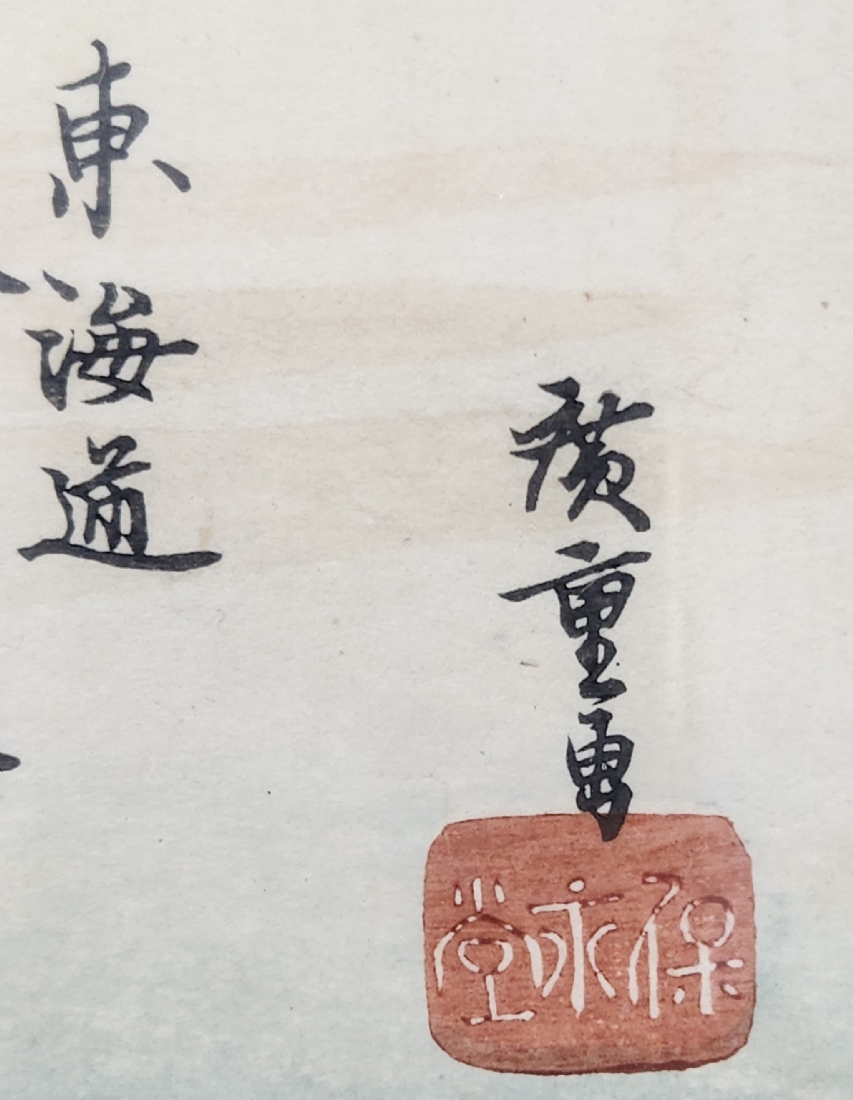 廣重画
保永堂
東海道